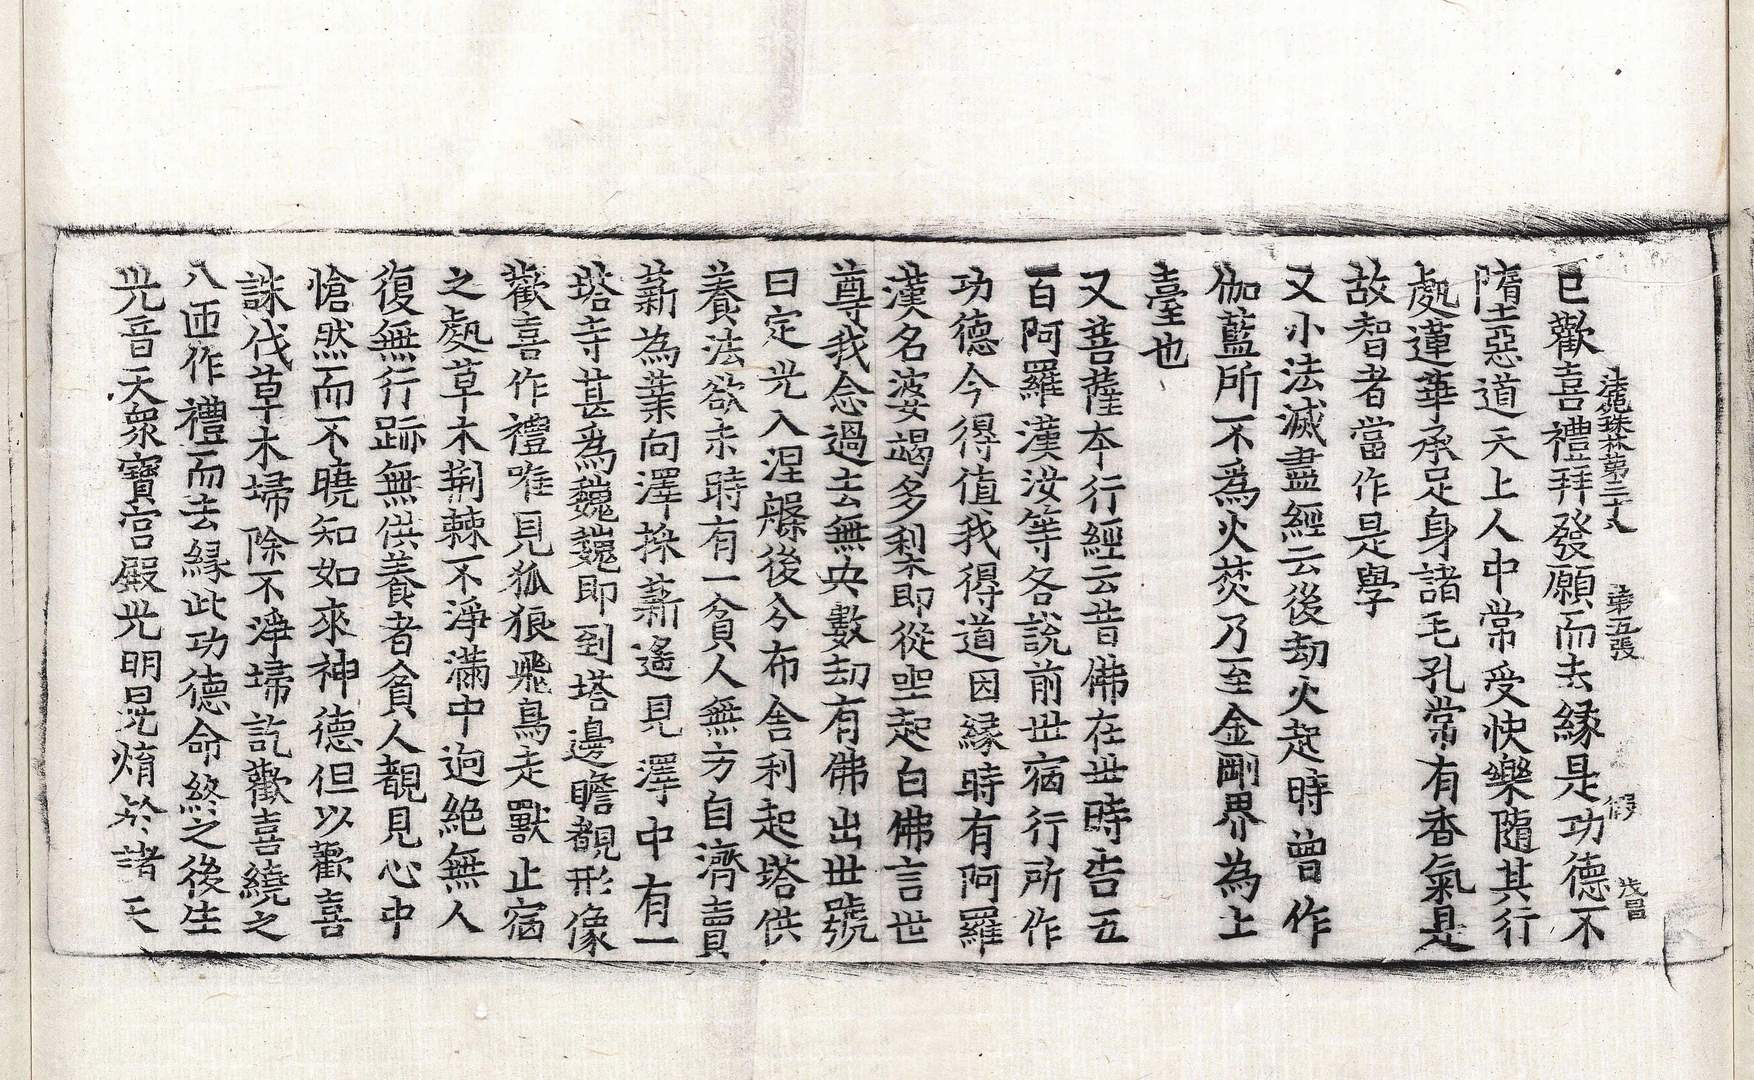 已歡喜禮拜發願而去縁是功德不
法苑珠林第三十八 第五張 㣲 茂昌
墮惡道天上人中常受快樂隨其行
處蓮華承足身諸毛孔常有香氣是
故智者當作是學
又小法滅盡經云後劫火起時曾作
伽藍所不爲火焚乃至金剛界為上
臺也
又菩薩本行經云昔佛在世時告五
百阿羅漢汝等各說前世宿行所作
功德今得值我得道因縁時有阿羅
漢名婆竭多梨即從坐起白佛言世
尊我念過去無央數劫有佛出世號
曰定光入涅槃後分布舍利起塔供
養法欲末時有一貧人無方自濟賣
薪為業向澤採薪遙見澤中有一
塔寺甚爲巍巍即到塔邊瞻覩形像
歡喜作禮唯見狐狼飛鳥走獸止宿
之處草木荆棘不淨滿中迥絶無人
復無行跡無供養者貧人覩見心中
愴然而不曉知如來神德但以歡喜
誅伐草木埽除不淨埽訖歡喜繞之
八匝作禮而去縁此功德命終之後生
光音天衆寶宫殿光明晃煟於諸天